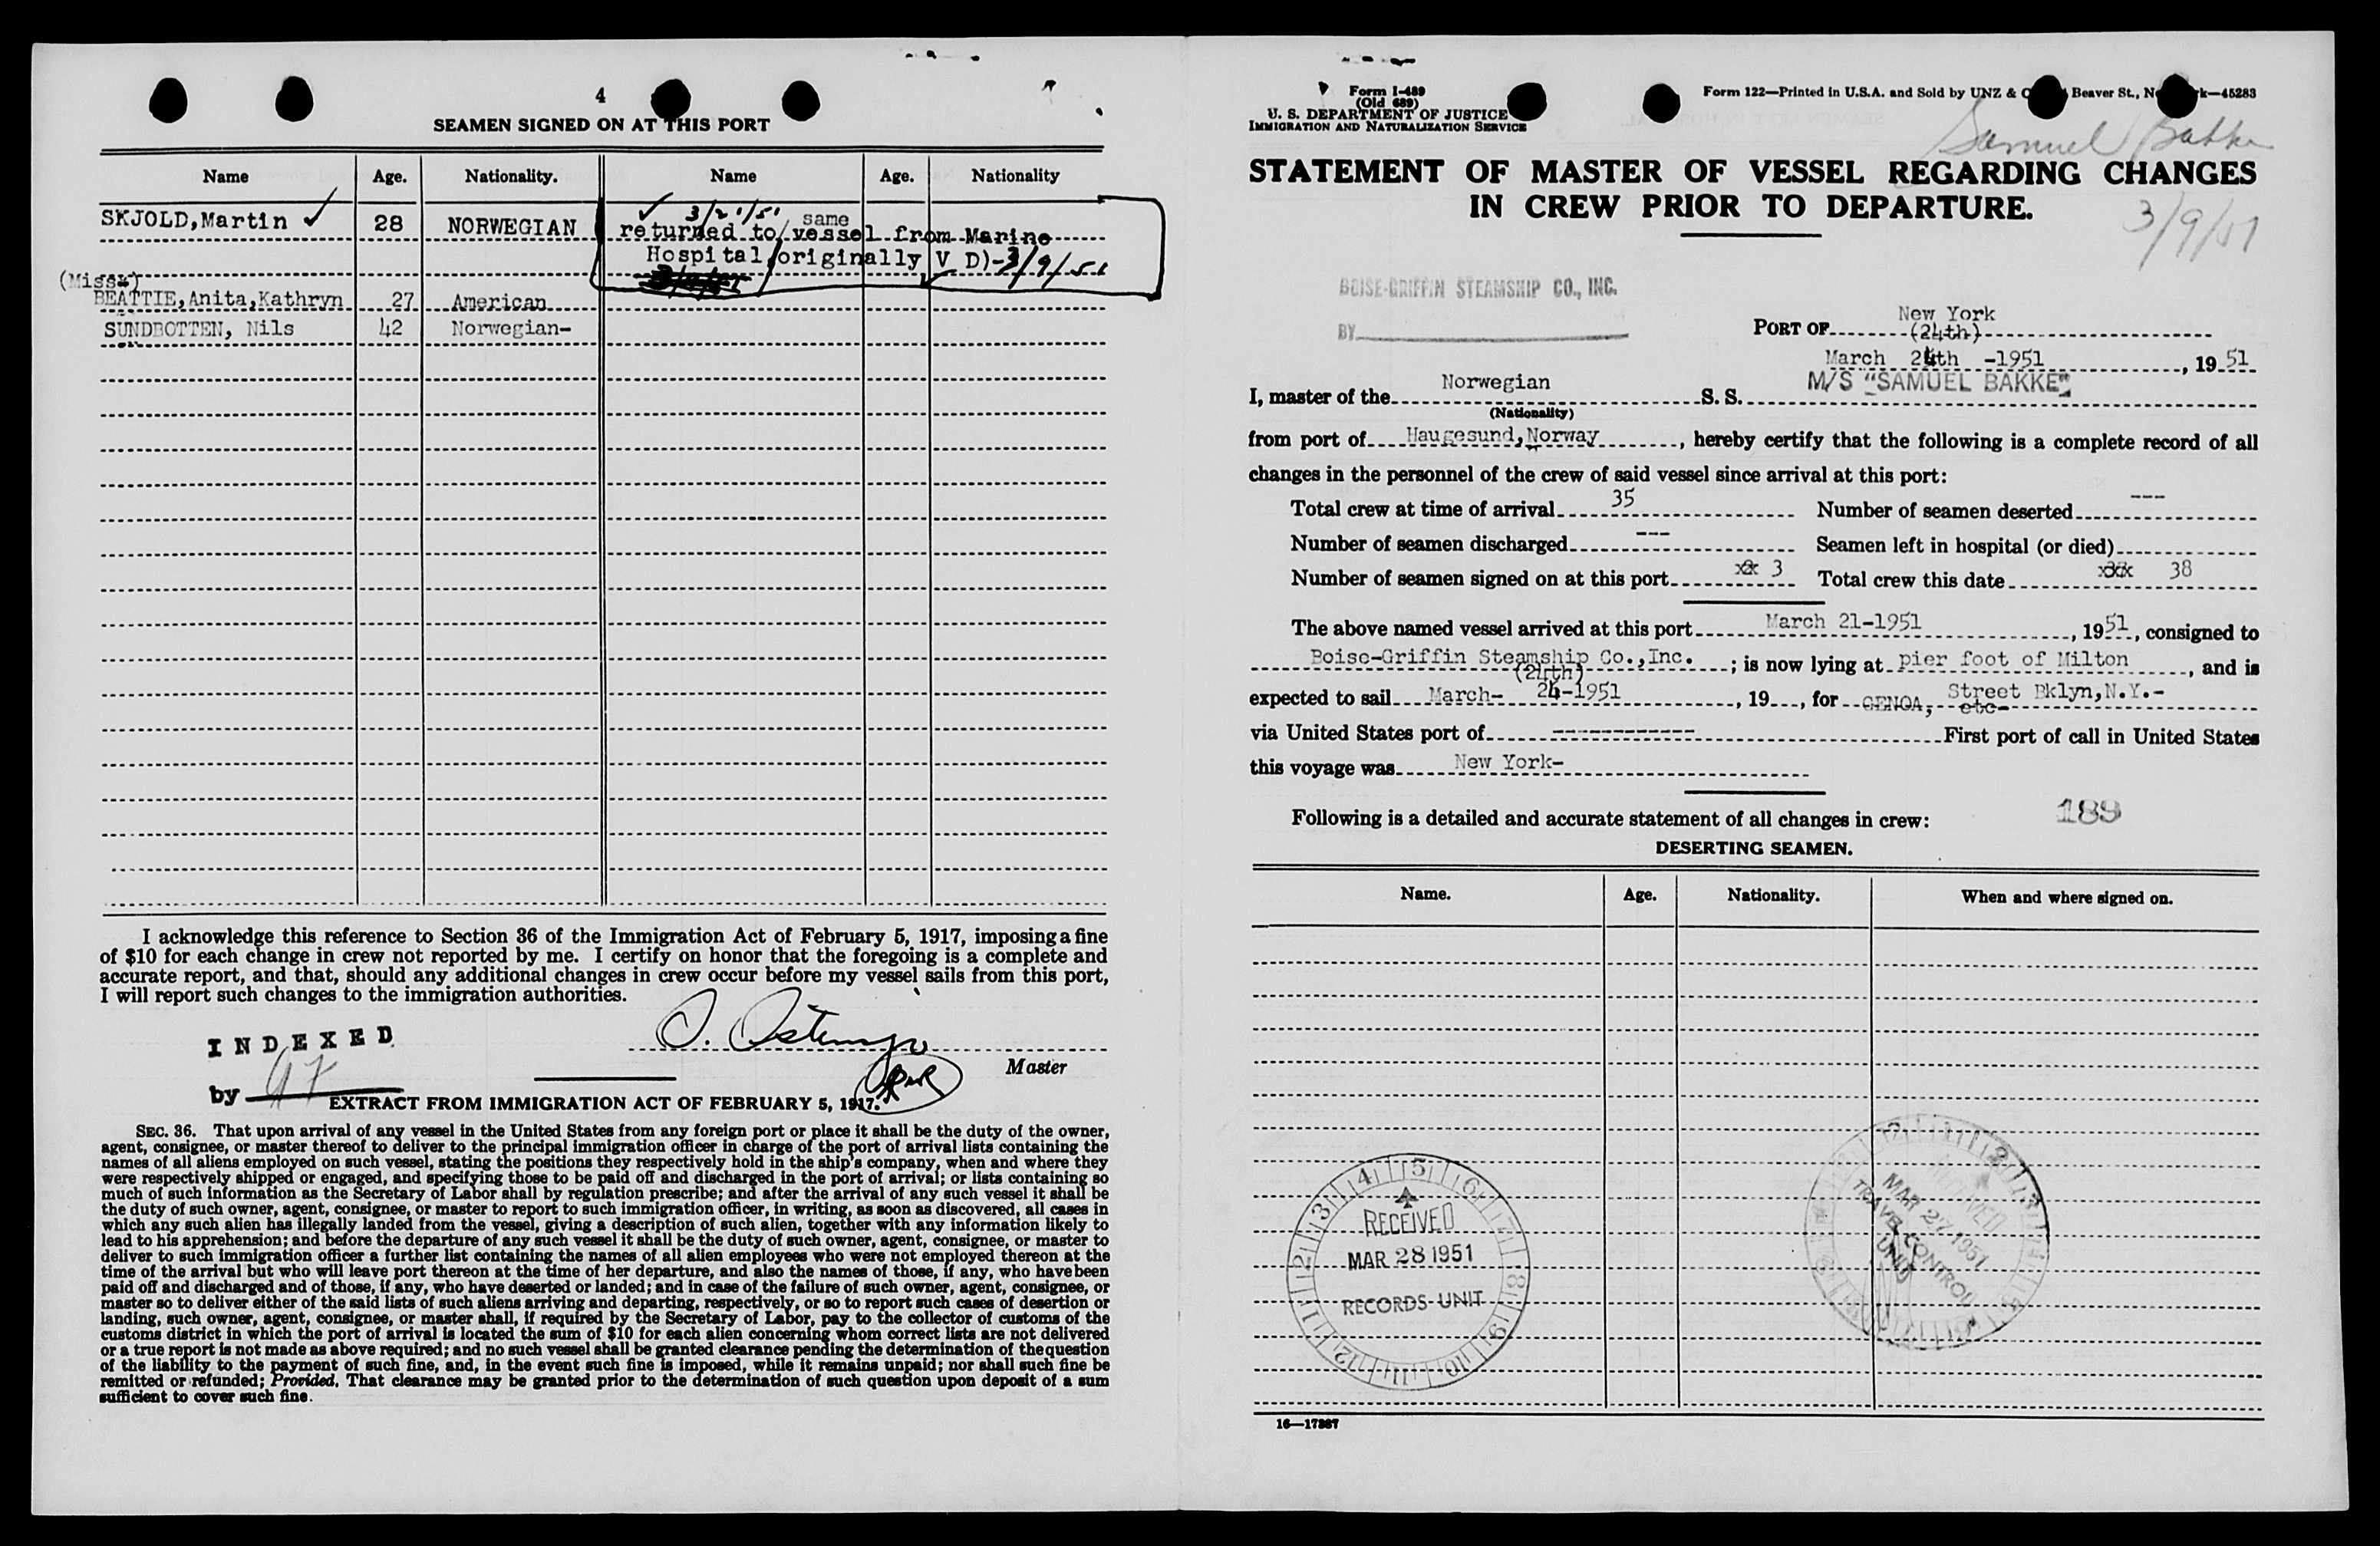 4
SEAMEN SIGNED ON AT THIS PORT
Name Age. Nationality. Name Age. Nationality
SKJOLD, Martin ✓ 28 NORWEGIAN
✓ 3/21/51 same
returned to/vessel from Marine
Hospital (originally V D)-3/9/51
(Miss)
BEATTIE, Anita, Kathryn 27 American
SUNDBOTTEN, Nils 42 Norwegian-
I acknowledge this reference to Section 36 of the Immigration Act of February 5, 1917, imposing a fine
of $10 for each change in crew not reported by me. I certify on honor that the foregoing is a complete and
accurate report, and that, should any additional changes in crew occur before my vessel sails from this port,
I will report such changes to the immigration authorities.
INDEXED
by
Master
EXTRACT FROM IMMIGRATION ACT OF FEBRUARY 5, 1917.
SEC. 36. That upon arrival of any vessel in the United States from any foreign port or place it shall be the duty of the owner,
agent, consignee, or master thereof to deliver to the principal immigration officer in charge of the port of arrival lists containing the
names of all aliens employed on such vessel, stating the positions they respectively hold in the ship's company, when and where they
were respectively shipped or engaged, and specifying those to be paid off and discharged in the port of arrival; or lists containing so
much of such information as the Secretary of Labor shall by regulation prescribe; and after the arrival of any such vessel it shall be
the duty of such owner, agent, consignee, or master to report to such immigration officer, in writing, as soon as discovered, all cases in
which any such alien has illegally landed from the vessel, giving a description of such alien, together with any information likely to
lead to his apprehension; and before the departure of any such vessel it shall be the duty of such owner, agent, consignee, or master to
deliver to such immigration officer a further list containing the names of all alien employees who were not employed thereon at the
time of the arrival but who will leave port thereon at the time of her departure, and also the names of those, if any, who have been
paid off and discharged and of those, if any, who have deserted or landed; and in case of the failure of such owner, agent, consignee, or
master so to deliver either of the said lists of such aliens arriving and departing, respectively, or so to report such cases of desertion or
landing, such owner, agent, consignee, or master shall, if required by the Secretary of Labor, pay to the collector of customs of the
customs district in which the port of arrival is located the sum of $10 for each alien concerning whom correct lists are not delivered
or a true report is not made as above required; and no such vessel shall be granted clearance pending the determination of the question
of the liability to the payment of such fine, and, in the event such fine is imposed, while it remains unpaid; nor shall such fine be
remitted or refunded; Provided, That clearance may be granted prior to the determination of such question upon deposit of a sum
sufficient to cover such fine.
Form I-489
(Old 689)
U. S. DEPARTMENT OF JUSTICE
IMMIGRATION AND NATURALIZATION SERVICE
Form 122—Printed in U.S.A. and Sold by UNZ & Beaver St., —45283
Samuel Bakke
STATEMENT OF MASTER OF VESSEL REGARDING CHANGES
IN CREW PRIOR TO DEPARTURE.
3/9/51
BOISE-GRIFFIN STEAMSHIP CO., INC.
BY
PORT OF New York
(24th)
March 24th -1951, 1951
I, master of the Norwegian S. S. M/S "SAMUEL BAKKE"
(Nationality)
from port of Haugesund, Norway, hereby certify that the following is a complete record of all
changes in the personnel of the crew of said vessel since arrival at this port:
Total crew at time of arrival 35 Number of seamen deserted ---
Number of seamen discharged --- Seamen left in hospital (or died)
Number of seamen signed on at this port 3 Total crew this date 38
The above named vessel arrived at this port March 21-1951, 1951, consigned to
Boise-Griffin Steamship Co., Inc.; is now lying at pier foot of Milton, and is
(24th)
expected to sail March- 24-1951, 19, for GENOA, etc- Street Bklyn, N.Y.-
via United States port of ------------ First port of call in United States
this voyage was New York-
Following is a detailed and accurate statement of all changes in crew:
189
DESERTING SEAMEN.
Name. Age. Nationality. When and where signed on.
RECEIVED
MAR 28 1951
RECORDS UNIT
RECEIVED
MAR 27 1951
TRAVEL CONTROL
UNIT
16—17887